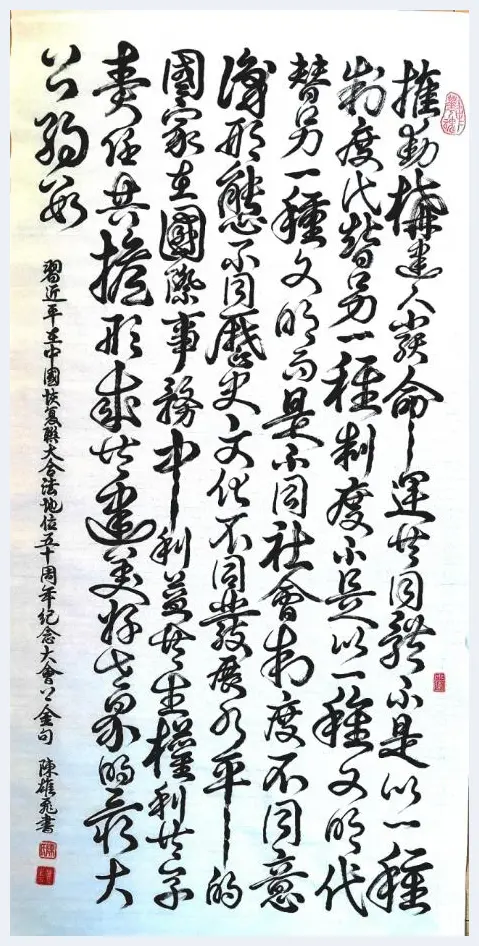 推動構建人類命運共同體不是以一種
制度代替另一種制度不是以一種文明代
替另一種文明而是不同社會制度不同意
識形態不同歷史文化不同發展水平的
國家在國際事務中利益共生權利共享
責任共擔形成共建美好世界的最大
公約數
習近平在中國恢復聯大合法地位五十周年紀念大會上金句 陳雄飛書